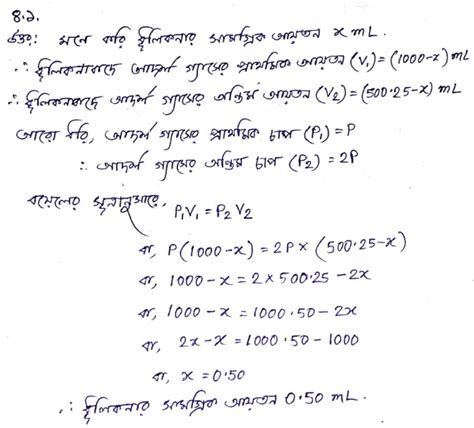 ৪.১.
উত্তর: মনে করি ধূলিকনার সামগ্রিক আয়তন x mL.
∴ ধূলিকনাবাদে আদর্শ গ্যাসের প্রাথমিক আয়তন (V₁) = (1000-x) mL
∴ ধূলিকনাবাদে আদর্শ গ্যাসের অন্তিম আয়তন (V₂) = (500·25-x) mL
আরো ধরি, আদর্শ গ্যাসের প্রাথমিক চাপ (P₁) = P
∴ আদর্শ গ্যাসের অন্তিম চাপ (P₂) = 2P
বয়েলের সূত্রানুসারে, P₁V₁ = P₂V₂
বা, P(1000-x) = 2P× (500·25-x)
বা, 1000-x = 2×500·25 - 2x
বা, 1000-x = 1000·50 - 2x
বা, 2x-x = 1000·50 - 1000
বা, x = 0·50
∴ ধূলিকনার সামগ্রিক আয়তন 0·50 mL.